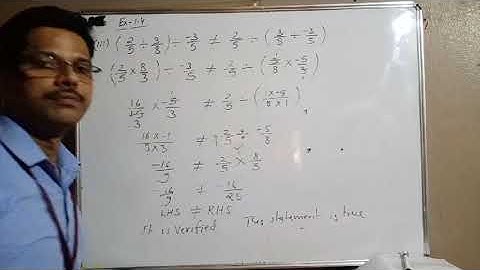 Ex-1.4
(iii) (2/5 ÷ 3/8) ÷ -3/5 ≠ 2/5 ÷ (3/8 ÷ -3/5)
(2/5 × 8/3) ÷ -3/5 ≠ 2/5 ÷ (3/8 × -5/3)
16/15 × -5/3 ≠ 2/5 ÷ (1×-5/8×1)
16×-1/3×3 ≠ 2/5 ÷ -5/8
-16/9 ≠ 2/5 × 8/5
-16/9 ≠ -16/25
LHS ≠ RHS
It is verified The statement is true